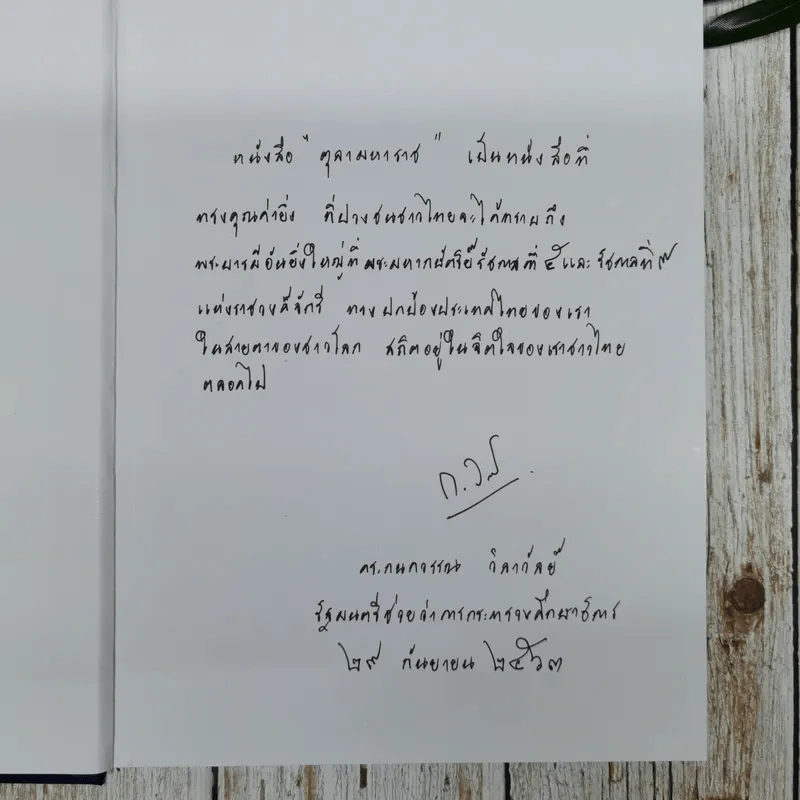 หนังสือ "ตุลามหาราช" เป็นหนังสือที่
ทรงคุณค่ายิ่ง ที่ปวงชนชาวไทยจะได้ทราบถึง
พระบารมีอันยิ่งใหญ่ที่พระมหากษัตริย์รัชกาลที่ ๕ และ รัชกาลที่ ๙
แห่งราชวงศ์จักรี ทางปกป้องประเทศไทยของเรา
ในสายตาของชาวโลก สถิตอยู่ในจิตใจของเราชาวไทย
ตลอดไป
ดร.กนกวรรณ วิลาวัลย์
รัฐมนตรีช่วยว่าการกระทรวงศึกษาธิการ
๒๙ กันยายน ๒๕๖๓